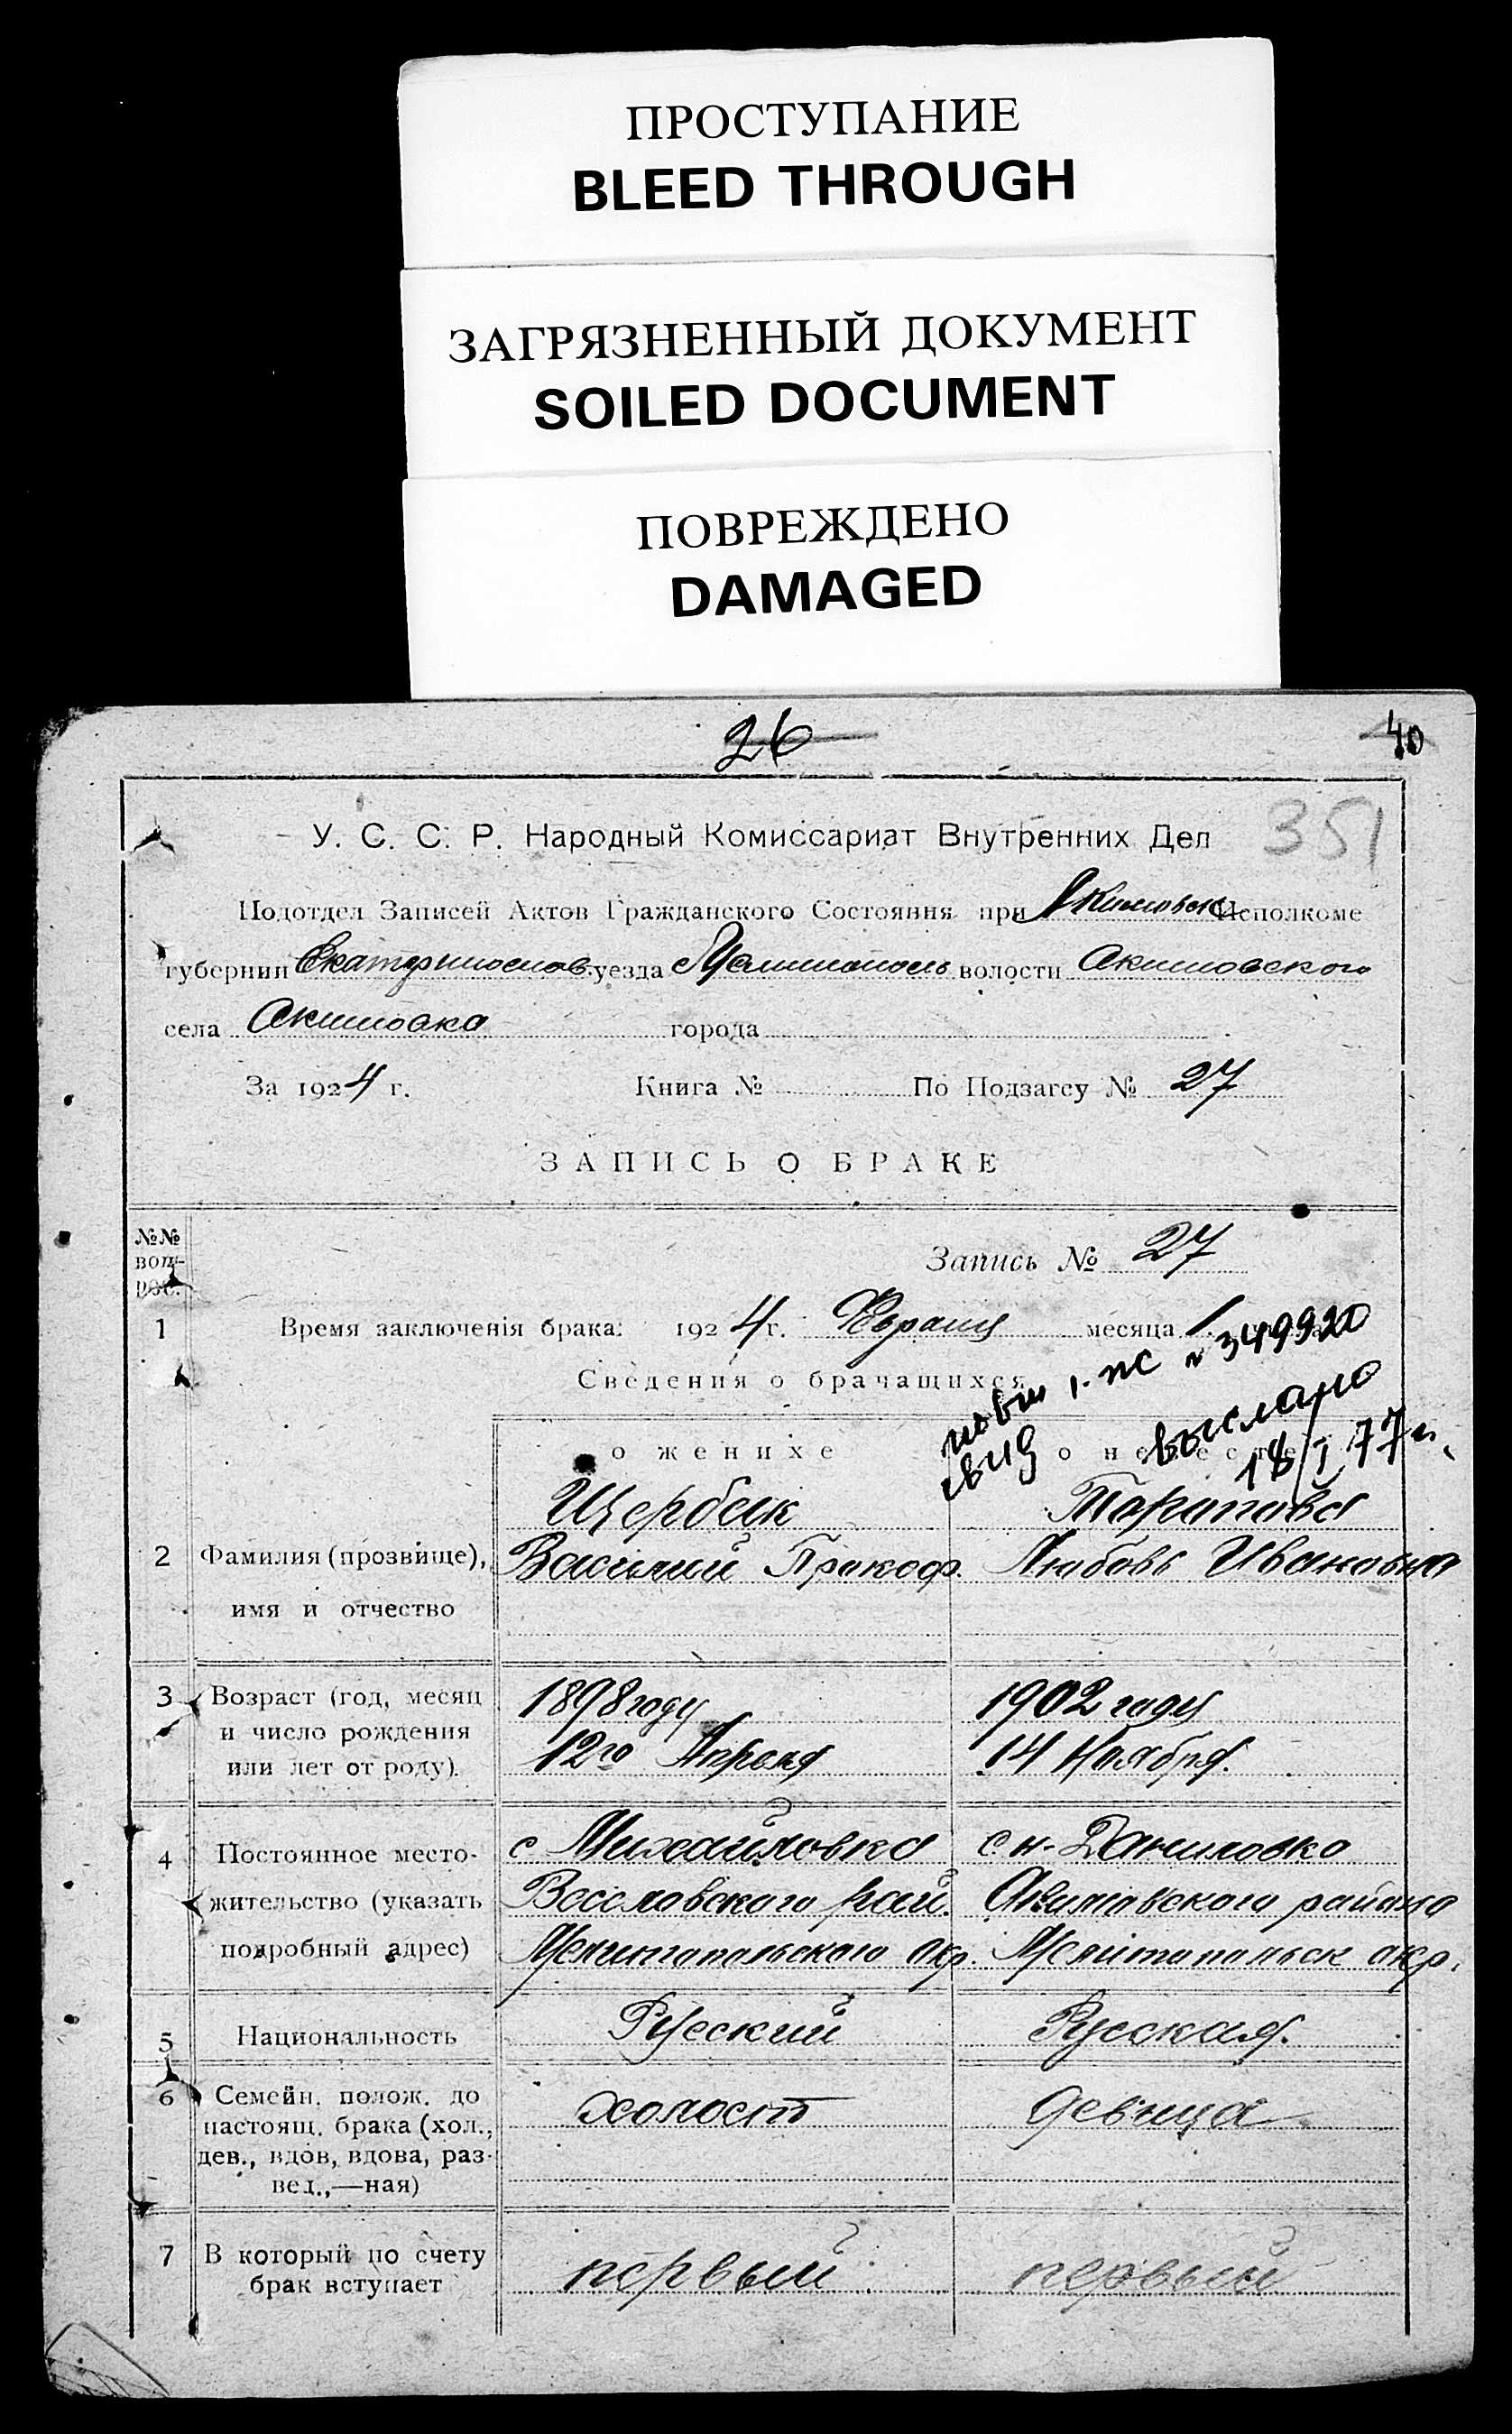 ПРОСТУПАНИЕ
BLEED THROUGH
ЗАГРЯЗНЕННЫЙ ДОКУМЕНТ
SOILED DOCUMENT
ПОВРЕЖДЕНО
DAMAGED
26
40
У. С. С. Р. Народный Комиссариат Внутренних Дел 351
Подотдел Записей Актов Гражданского Состояния при Исполкоме
губернии Екатеринослав. уезда волости Акимовского
села Акимовка города
За 1924 г. Книга № По Подзагсу № 27
ЗАПИСЬ О БРАКЕ
№№ вопрос.
Запись № 27
1 Время заключенія брака: 1924 г. месяца 1
Сведения о брачащихся
349920
выслано
18/I 77 г.
о женихе о невесте
Щербак Тарапова
2 Фамилия (прозвище), Василий Прокоф. Любовь Ивановна
имя и отчество
3 Возраст (год, месяц 1898 году 1902 году
и число рождения 12го Апреля 14 Ноября.
или лет от роду).
4 Постоянное место- с Михайловка с н-Даниловка
жительство (указать Веселовского рай. Акимовского района
подробный адрес) Мелитопольского окр. Мелитопольск окр.
5 Национальность Русский Русская.
6 Семейн. полож. до холост девица
настоящ. брака (хол.,
дев., вдов, вдова, раз-
вед.,—ная)
7 В который по счету первый первый
брак вступает